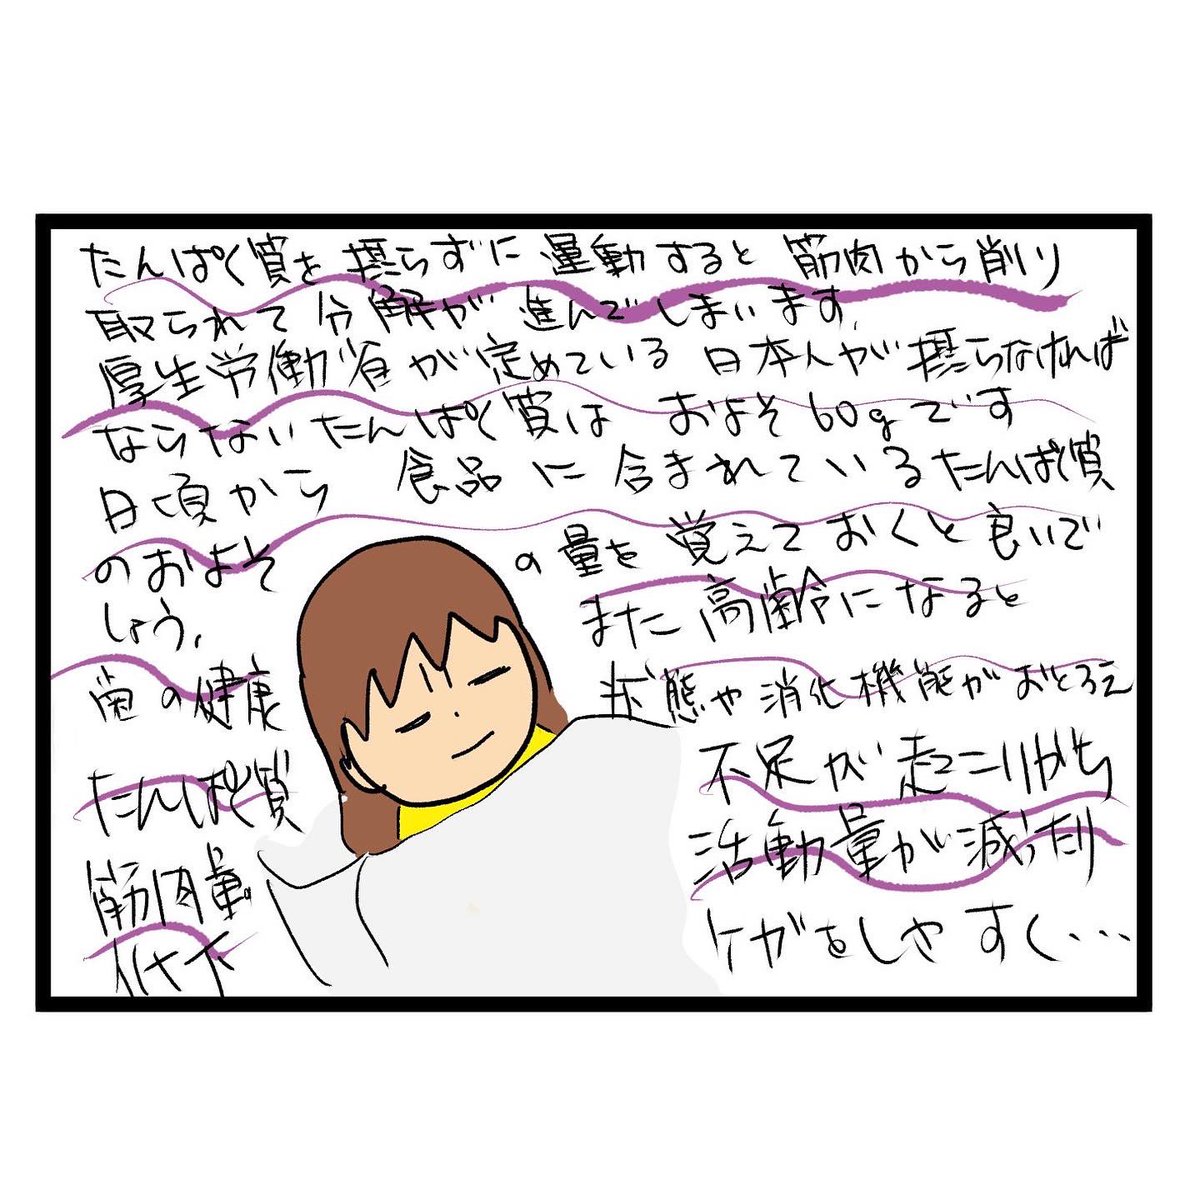 たんぱく質を摂らずに運動すると筋肉から削り
取られて分解が進んでしまいます。
厚生労働省が定めている日本人が摂らなければ
ならないたんぱく質はおよそ60gです
日頃から食品に含まれているたんぱく質
のおよその量を覚えておくと良いで
しょう。また高齢になると
歯の健康状態や消化機能がおとろえ
たんぱく質不足が起こりがち
筋肉量活動量が減ったり
低下ケガをしやすく…